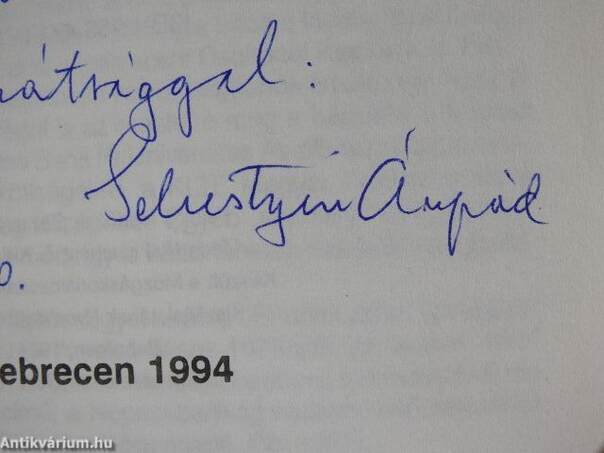 átsággal:
Sebestyén Árpád
0.
ebrecen 1994
Antikvárium.hu